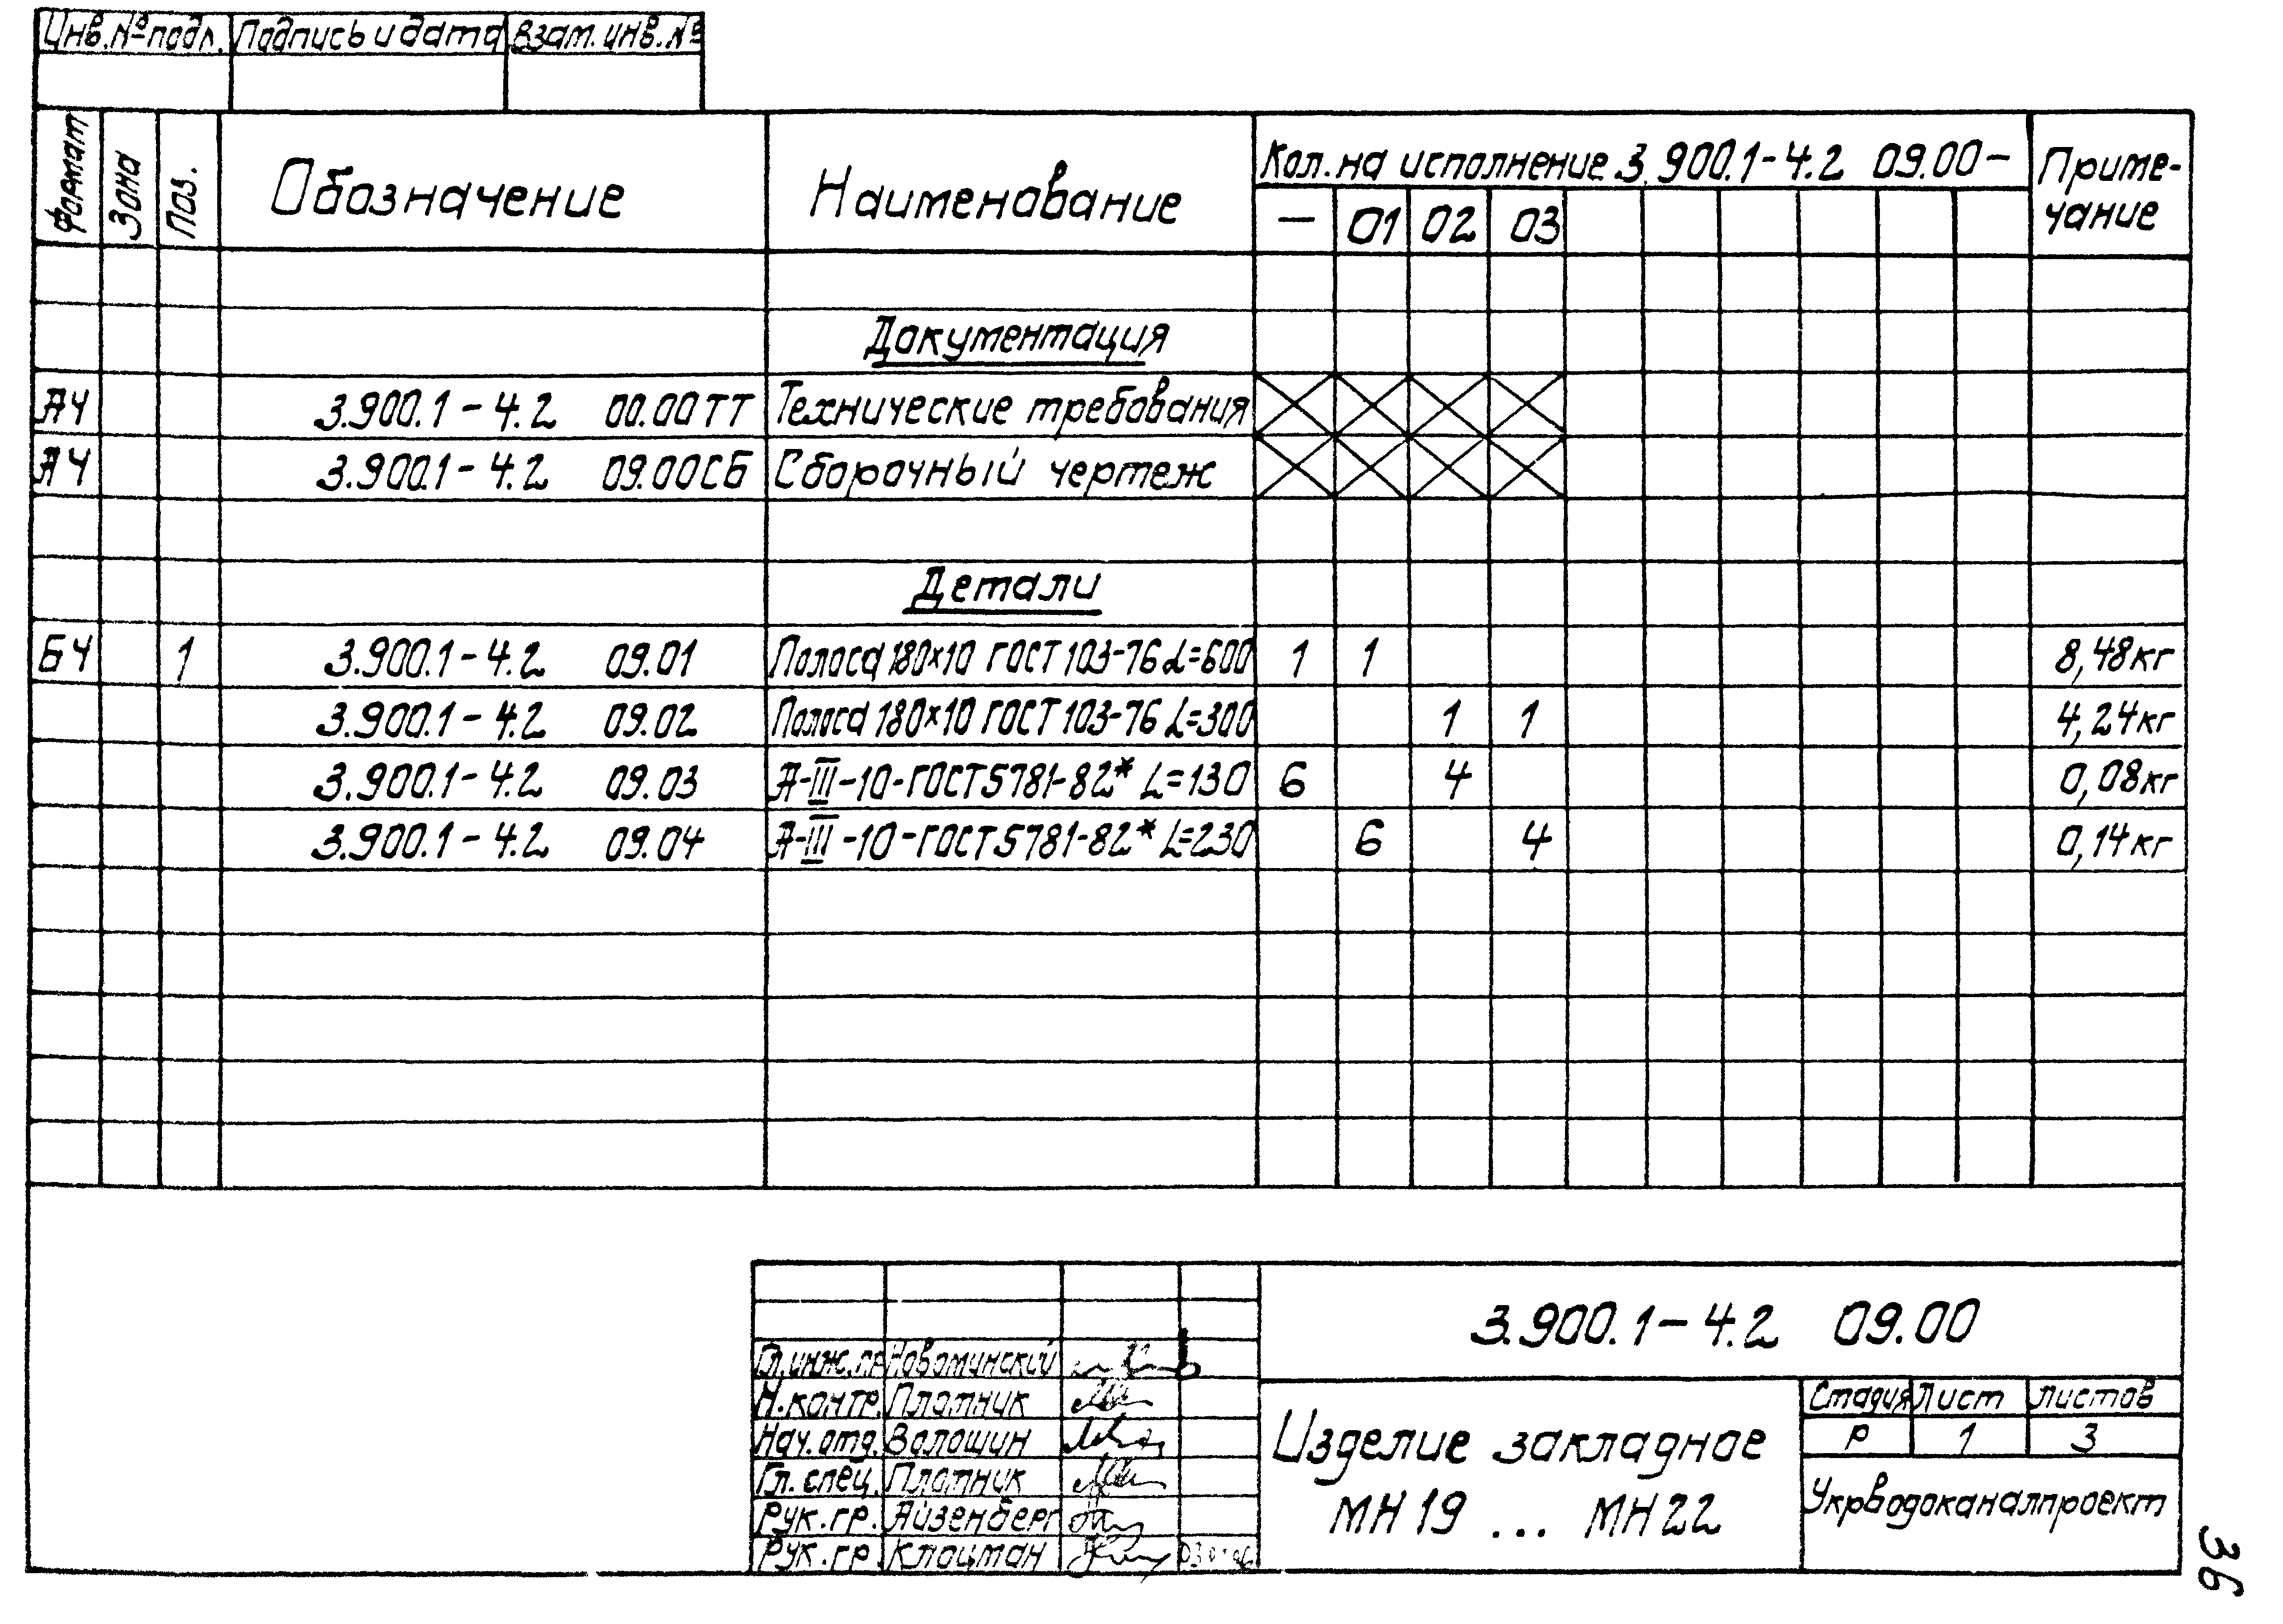 Инв.№ подл. Подпись и дата Взам. инв. №
Формат Зона Поз. Обозначение Наименование Кол. на исполнение 3.900.1-4.2 09.00- Приме-
чание
— 01 02 03
Документация
А4 3.900.1-4.2 00.00ТТ Технические требования
А4 3.900.1-4.2 09.00СБ Сборочный чертеж
Детали
БЧ 1 3.900.1-4.2 09.01 Полоса 180×10 ГОСТ 103-76 L=600 1 1 8,48кг
3.900.1-4.2 09.02 Полоса 180×10 ГОСТ 103-76 L=300 1 1 4,24кг
3.900.1-4.2 09.03 А-III-10-ГОСТ 5781-82* L=130 6 4 0,08кг
3.900.1-4.2 09.04 А-III-10-ГОСТ 5781-82* L=230 6 4 0,14кг
3.900.1-4.2 09.00
Гл.инж.пр Новоминский
Н.контр. Платник
Нач.отд. Волошин
Гл.спец. Платник
Рук.гр. Айзенберг
Рук.гр. Клоцман
Изделие закладное
МН19 ... МН22
Стадия Лист Листов
Р 1 3
Укрводоканалпроект
36